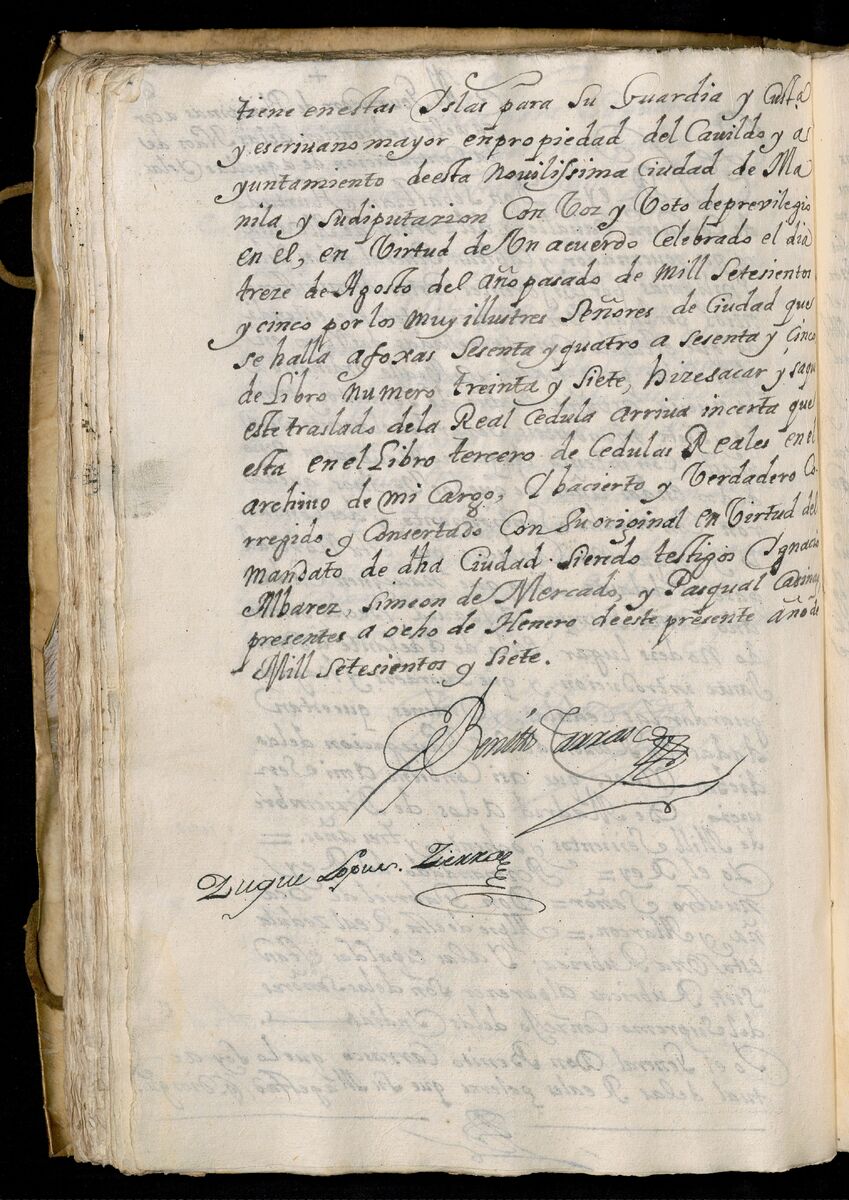 tiene en estas Yslas para su Guardia y Custa
y escriuano mayor en propiedad del Cauildo y a
yuntamiento de esta Novilissima Ciudad de Ma
nila y su diputazion Con Voz y Voto de previlegio
en el, en Virtud de Vn acuerdo Celebrado el dia
treze de Agosto del año pasado de Mill Setesientos
y cinco por los Muy illustres Señores de Ciudad que
se halla afoxas Sesenta y quatro a Sesenta y Cinco
de Libro Numero treinta y siete, hize sacar y saqu
este traslado dela Real Cedula arriva incerta que
esta en el Libro tercero de Cedulas Reales en el
archivo de mi Cargo, Y bacierto y Verdadero Co
rregido y Consertado Con su original en Virtud del
mandato de dha Ciudad. Siendo testigos Ygnacio
Albarez, Simeon de Mercado, y Pasqual
presentes a ocho de Henero de este presente año de
Mill Setesientos y Siete.
Benito Carrasco